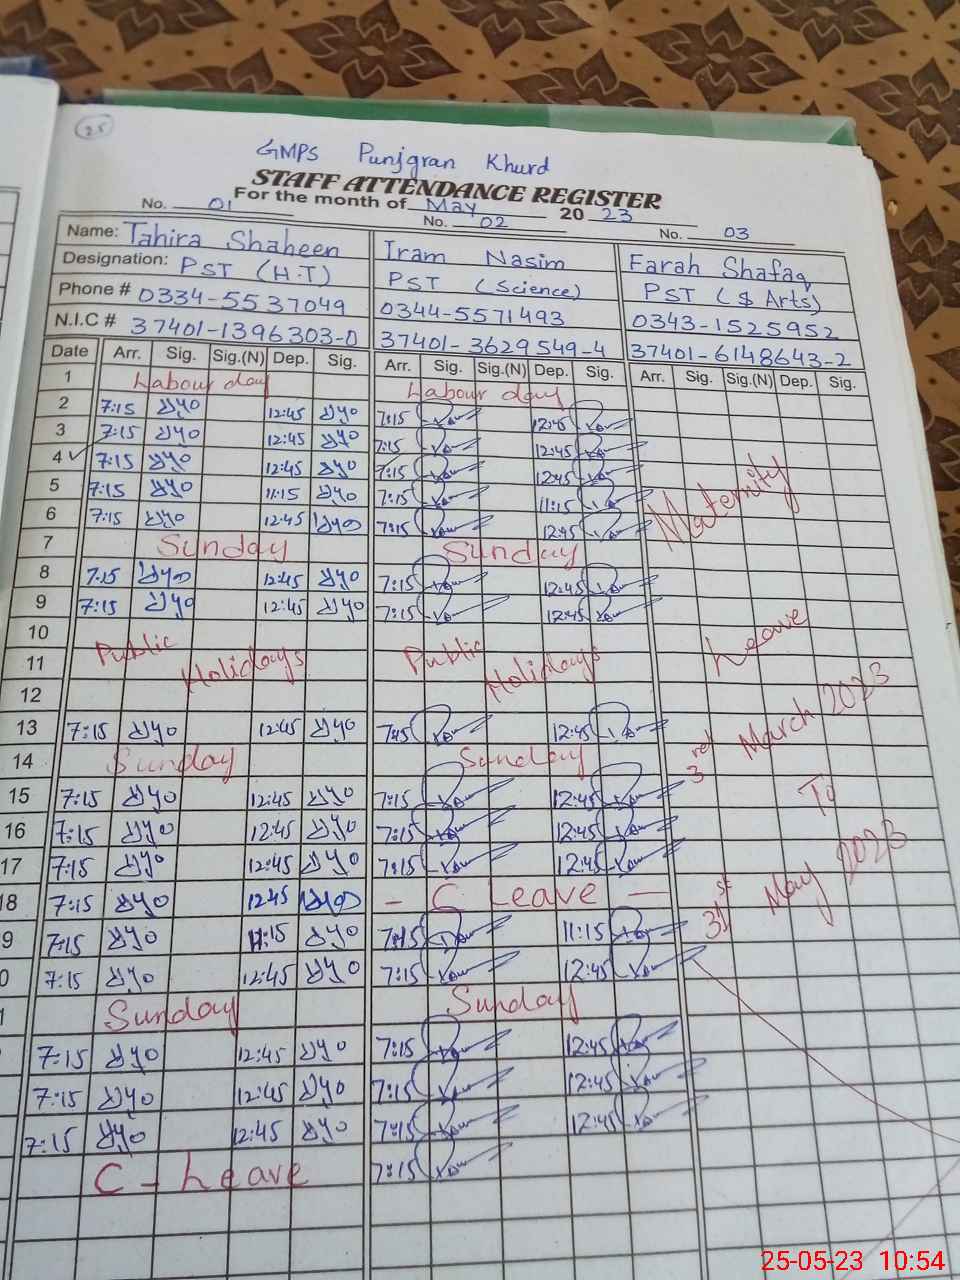 25
GMPS Punjgran Khurd
STAFF ATTENDANCE REGISTER
For the month of May 20 23
No. 01 No. 02 No. 03
Name: Tahira Shaheen Iram Nasim Farah Shafaq
Designation: PST (H.T) PST (Science) PST ($ Arts)
Phone # 0334-5537049 0344-5571493 0343-1525952
N.I.C # 37401-1396303-0 37401-3629549-4 37401-6148643-2
Date Arr. Sig. Sig.(N) Dep. Sig. Arr. Sig. Sig.(N) Dep. Sig. Arr. Sig. Sig.(N) Dep. Sig.
1 Labour day Labour day
2 7:15 12:45 7:15 12:45
3 7:15 12:45 7:15 12:45
4 7:15 12:45 7:15 12:45
5 7:15 11:15 7:15 11:15
6 7:15 12:45 7:15 12:45
Maternity
7 Sunday Sunday
8 7:15 12:45 7:15 12:45
9 7:15 12:45 7:15 12:45
10 Public Public Leave
11 Holidays Holidays
12
13 7:15 12:45 7:15 12:45
3rd March 2023
14 Sunday Sunday
15 7:15 12:45 7:15 12:45 To
16 7:15 12:45 7:15 12:45
17 7:15 12:45 7:15 12:45
18 7:15 12:45 - C Leave -
31st May 2023
9 7:15 11:15 7:15 11:15
0 7:15 12:45 7:15 12:45
1 Sunday Sunday
7:15 12:45 7:15 12:45
7:15 12:45 7:15 12:45
7:15 12:45 7:15 12:45
C - Leave 7:15
25-05-23 10:54